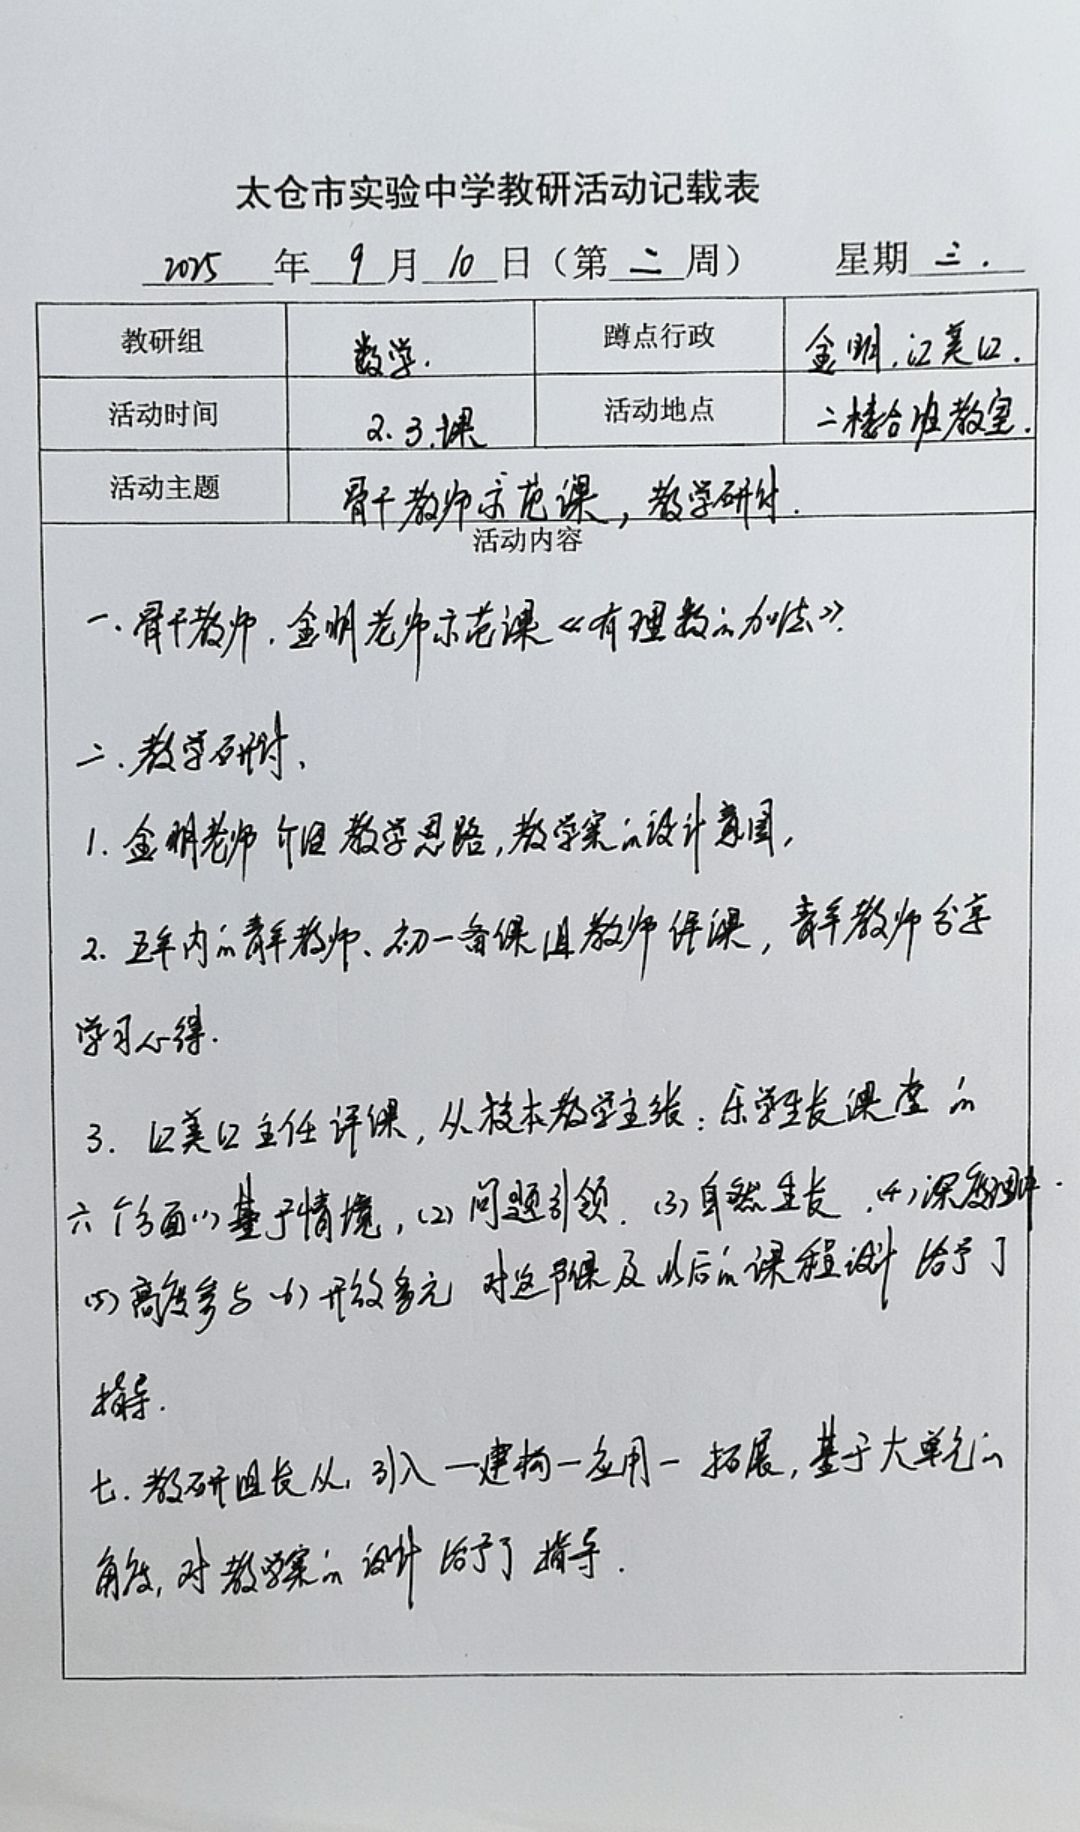 太仓市实验中学教研活动记载表
2025 年 9 月 10 日（第 二 周） 星期 三.
教研组 数学. 蹲点行政 金明.江美江.
活动时间 2.3.课 活动地点 二楼合班教室.
活动主题 骨干教师示范课，教学研讨.
活动内容
一.骨干教师.金明老师示范课《有理数的加法》.
二.教学研讨、
1.金明老师介绍教学思路,教学案的设计意图,
2.五年内的青年教师、初一备课组教师评课，青年教师分享
学习心得.
3. 江美江主任评课,从校本教学主张:乐学生长课堂的
六个方面(1)基于情境,(2)问题引领.(3)自然生长.(4)深度理解.
(5)高度参与(6)开放多元 对这节课及以后的课程设计给予了
指导.
七.教研组长从,引入一建构一应用一拓展,基于大单元的
角度,对教学案的设计给予了指导.